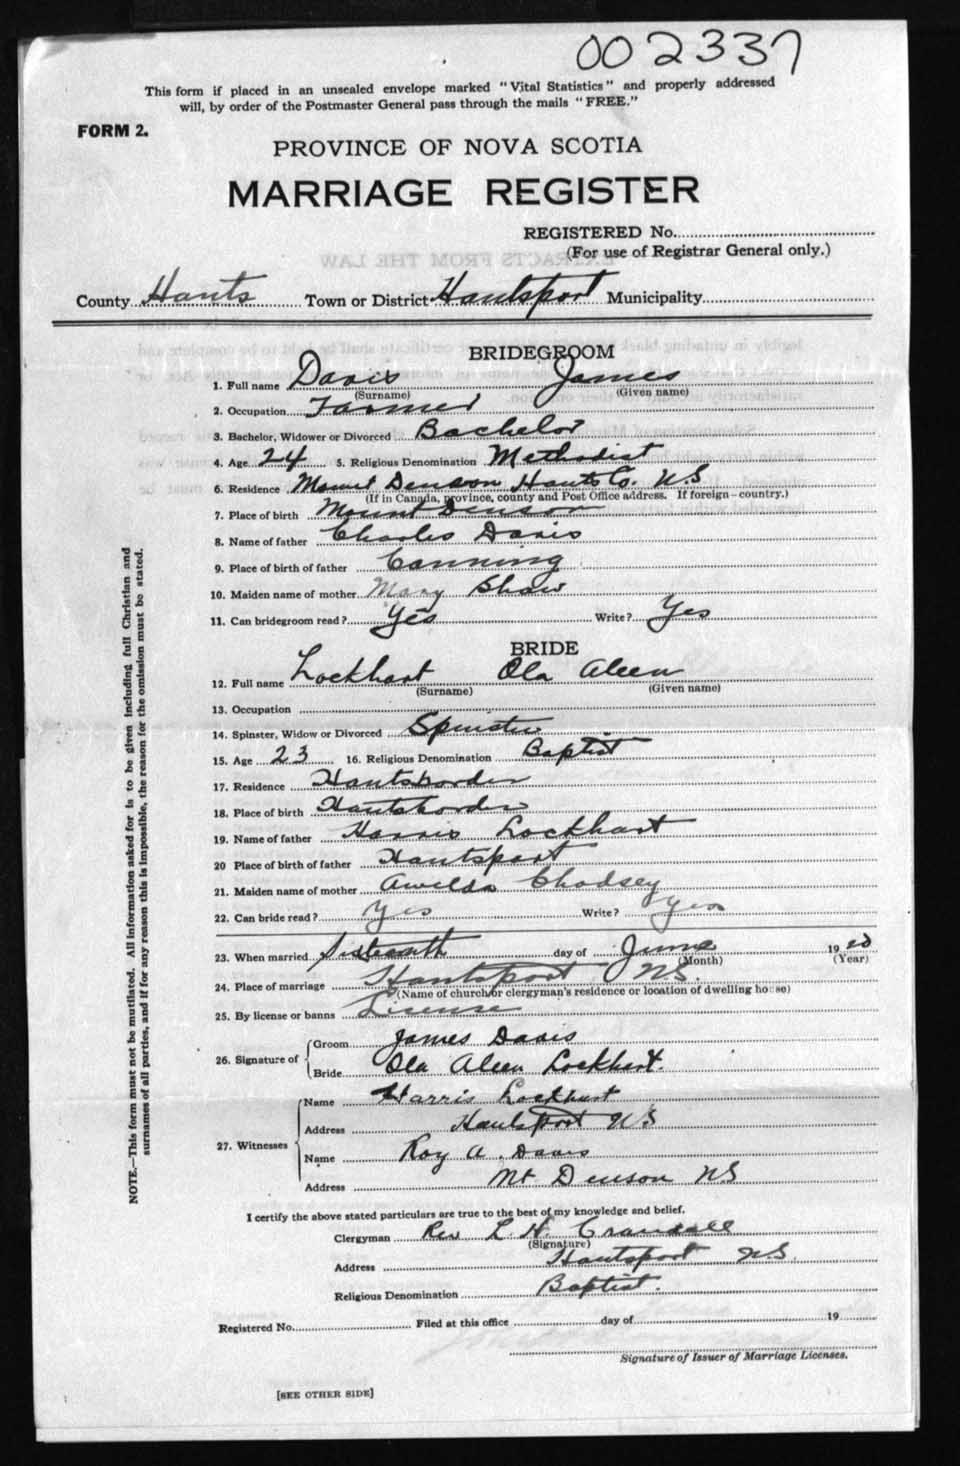 002337
This form if placed in an unsealed envelope marked "Vital Statistics" and properly addressed
will, by order of the Postmaster General pass through the mails "FREE."
FORM 2.
PROVINCE OF NOVA SCOTIA
MARRIAGE REGISTER
REGISTERED No.
(For use of Registrar General only.)
EXTRACTS FROM THE LAW
County Hants Town or District Hantsport Municipality
BRIDEGROOM
1. Full name Davis James
(Surname) (Given name)
2. Occupation Farmer
3. Bachelor, Widower or Divorced Bachelor
4. Age 24 5. Religious Denomination Methodist
6. Residence Mount Denson Hants Co. N.S
(If in Canada, province, county and Post Office address. If foreign-country.)
7. Place of birth Mount Denson
8. Name of father Charles Davis
9. Place of birth of father Canning
10. Maiden name of mother Mary Shaw
11. Can bridegroom read? Yes Write? Yes
BRIDE
12. Full name Lockhart Ola Aleen
(Surname) (Given name)
13. Occupation
14. Spinster, Widow or Divorced Spinster
15. Age 23 16. Religious Denomination Baptist
17. Residence Hantsborder
18. Place of birth Hantsborder
19. Name of father Harris Lockhart
20 Place of birth of father Hantsport
21. Maiden name of mother Awilda Chodsey
22. Can bride read? Yes Write? Yes
23. When married Sixteenth day of June 1920
(Month) (Year)
24. Place of marriage Hantsport NS.
(Name of church or clergyman's residence or location of dwelling house)
25. By license or banns License
26. Signature of Groom James Davis
Bride Ola Aleen Lockhart.
27. Witnesses Name Harris Lockhart
Address Hantsport N.S
Name Roy A. Davis
Address Mt Denson NS
I certify the above stated particulars are true to the best of my knowledge and belief.
Clergyman Rev L. H. Crandall
(Signature)
Address Hantsport N.S.
Religious Denomination Baptist.
Registered No. Filed at this office day of 19
Signature of Issuer of Marriage Licenses.
[SEE OTHER SIDE]
NOTE.—This form must not be mutilated. All information asked for is to be given including full Christian and
surnames of all parties, and if for any reason this is impossible, the reason for the omission must be stated.